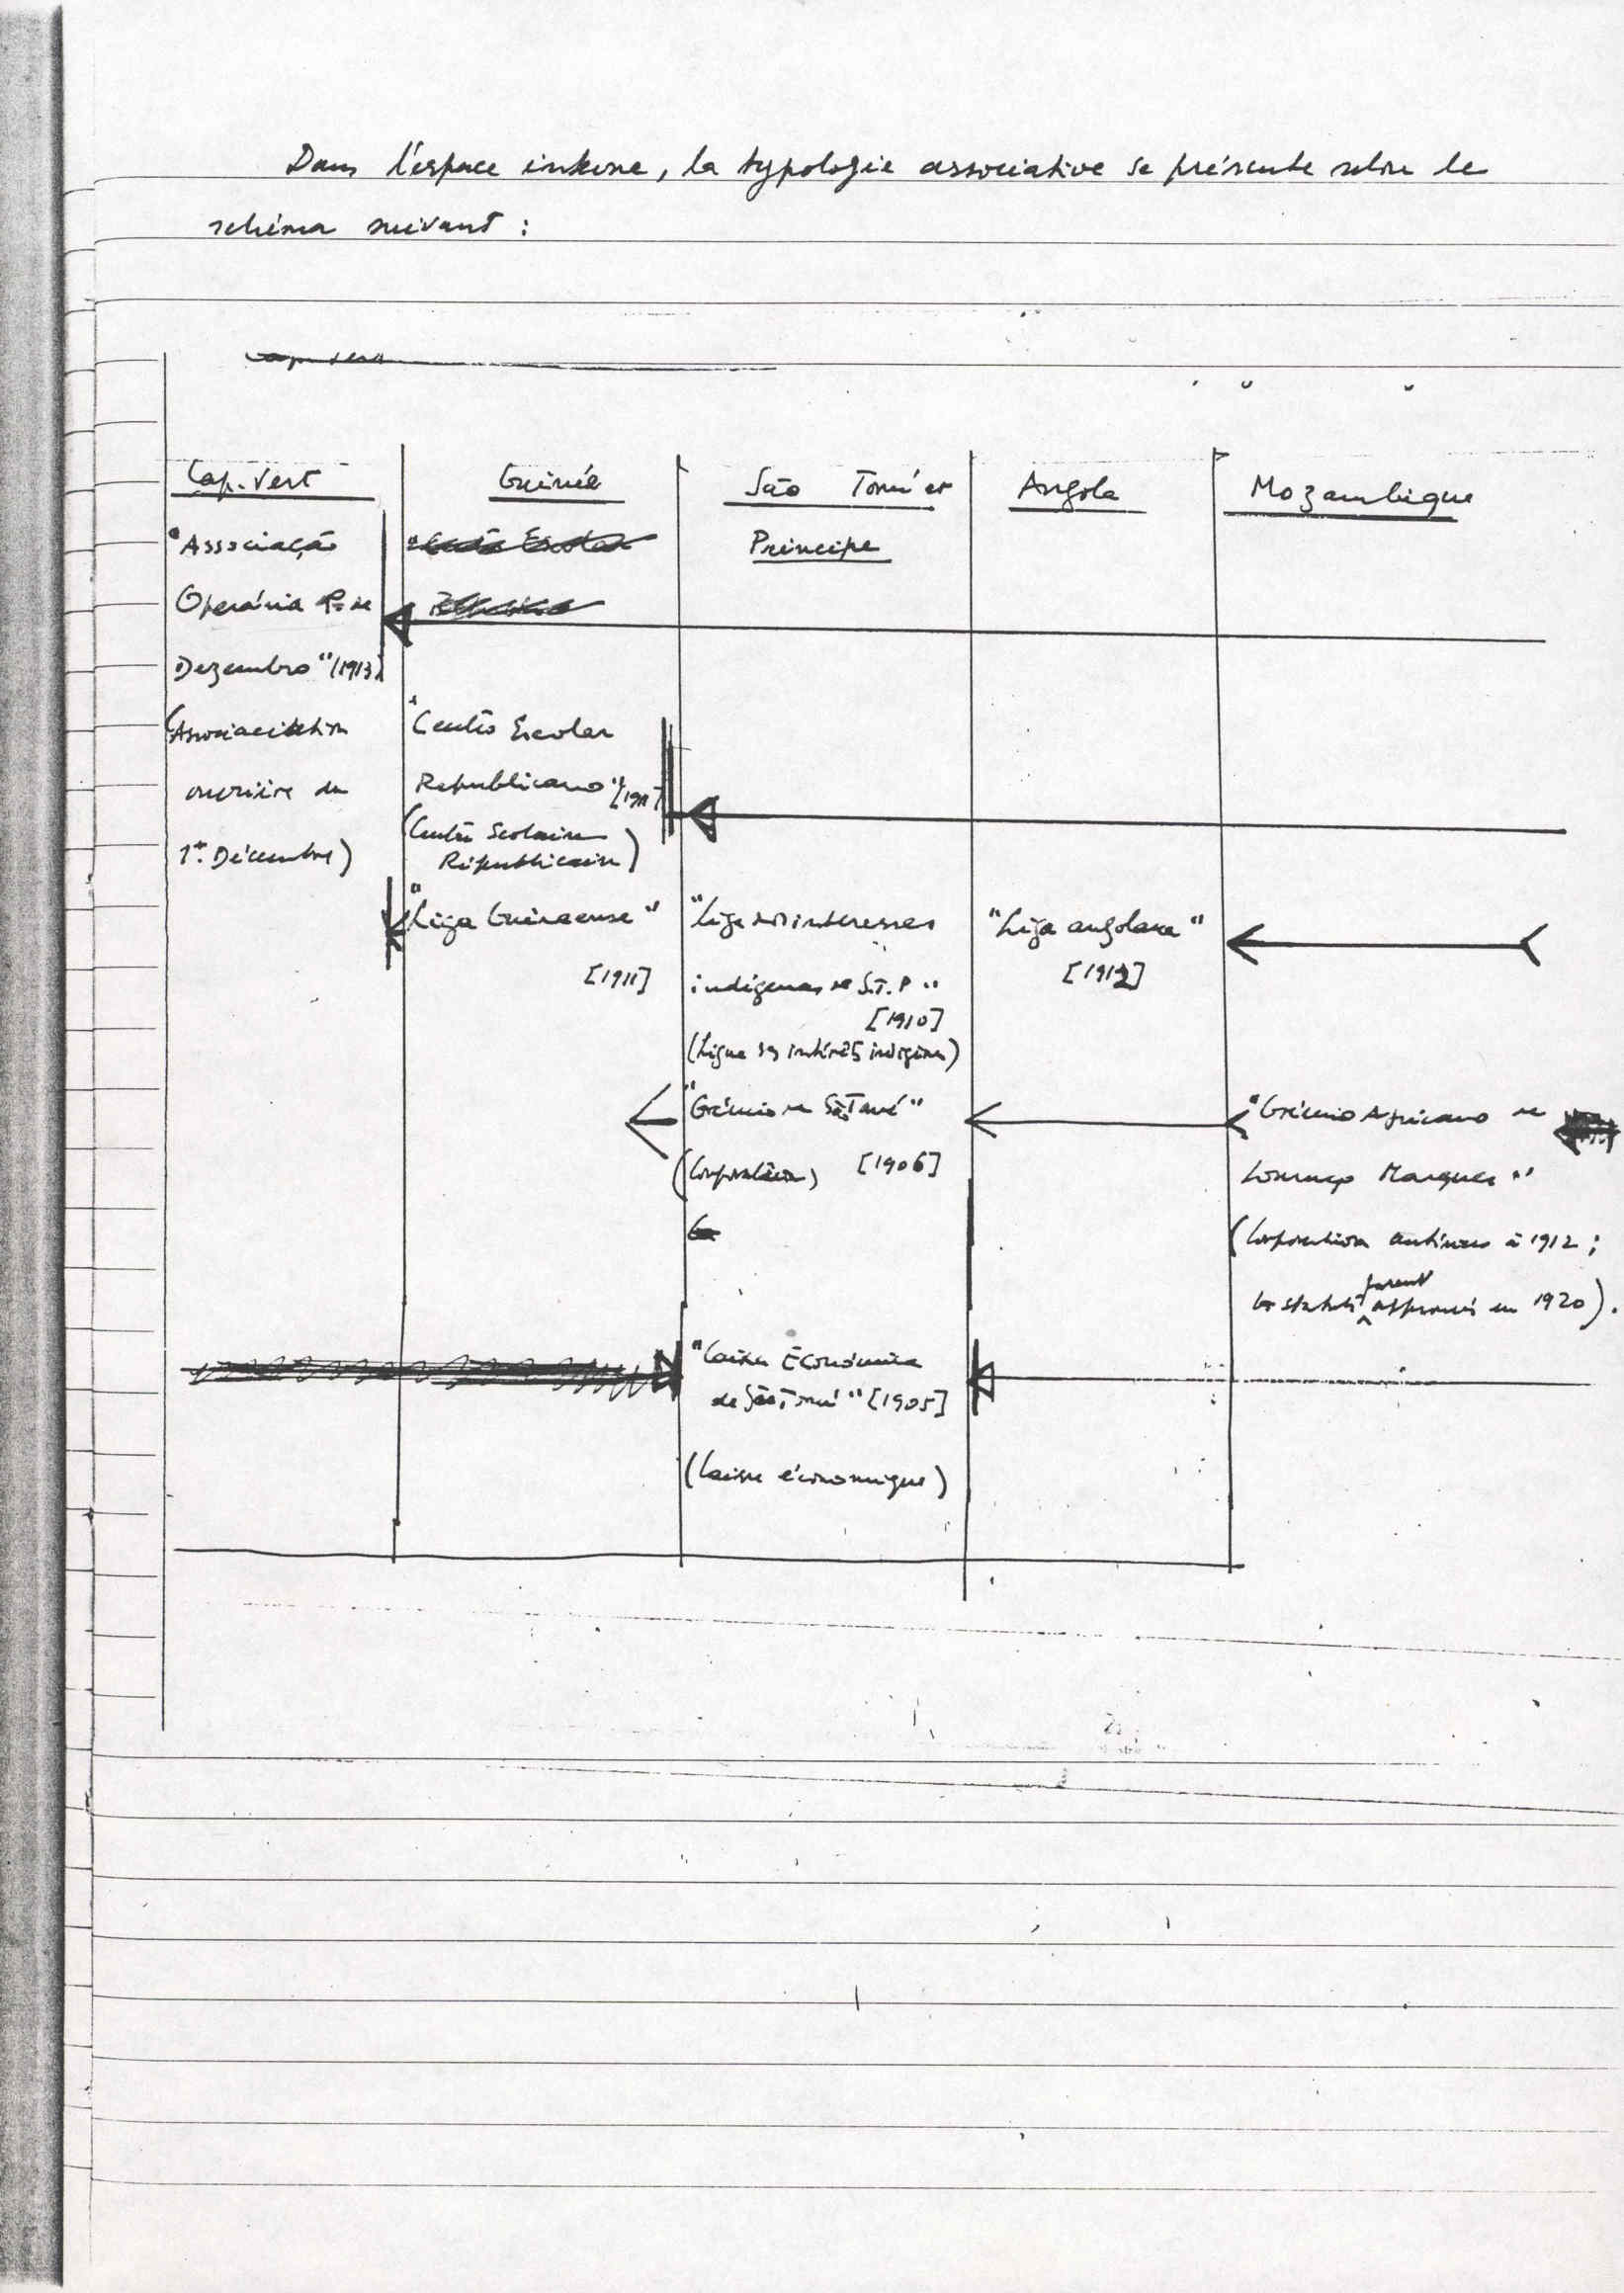 Dans l'espace interne, la typologie associative se présente selon le
schéma suivant :
Cap-Vert
Cap. Vert
"Associação
Operária 1º de
Dezembro" (1913)
(Association
ouvrière du
1er Décembre)
Guinée
"Centro Escolar
"Centro Escolar
Republicano" [1911]
(Centre Scolaire
Républicain)
"Liga Guineense"
[1911]
São Tomé et
Principe
"Liga dos interesses
indígenas de S.T.P"
[1910]
(Ligue des intérêts indigènes)
"Grémio de S. Tomé"
(Corporation) [1906]
"Caixa Económica
de São Tomé" [1905]
(Caisse économique)
Angola
"Liga angolana"
[1912]
Mozambique
"Grémio Africano de
Lourenço Marques"
(Corporation antérieure à 1912 ;
les statuts furent approuvés en 1920).